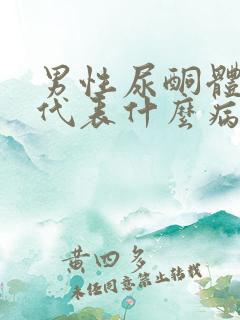 男性尿酮體
代表什麼病
黄四多
未经同意禁止转载